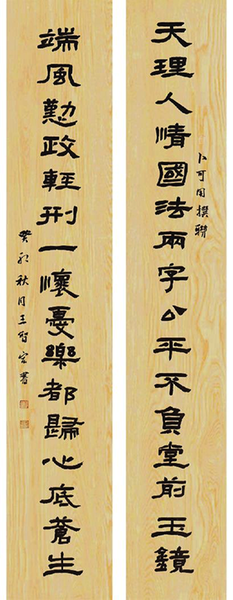 天理人情國法兩字公平不負堂前玉鏡
撰聯
端風勤政輕刑一懷憂樂都歸心底蒼生
癸卯秋月王智書